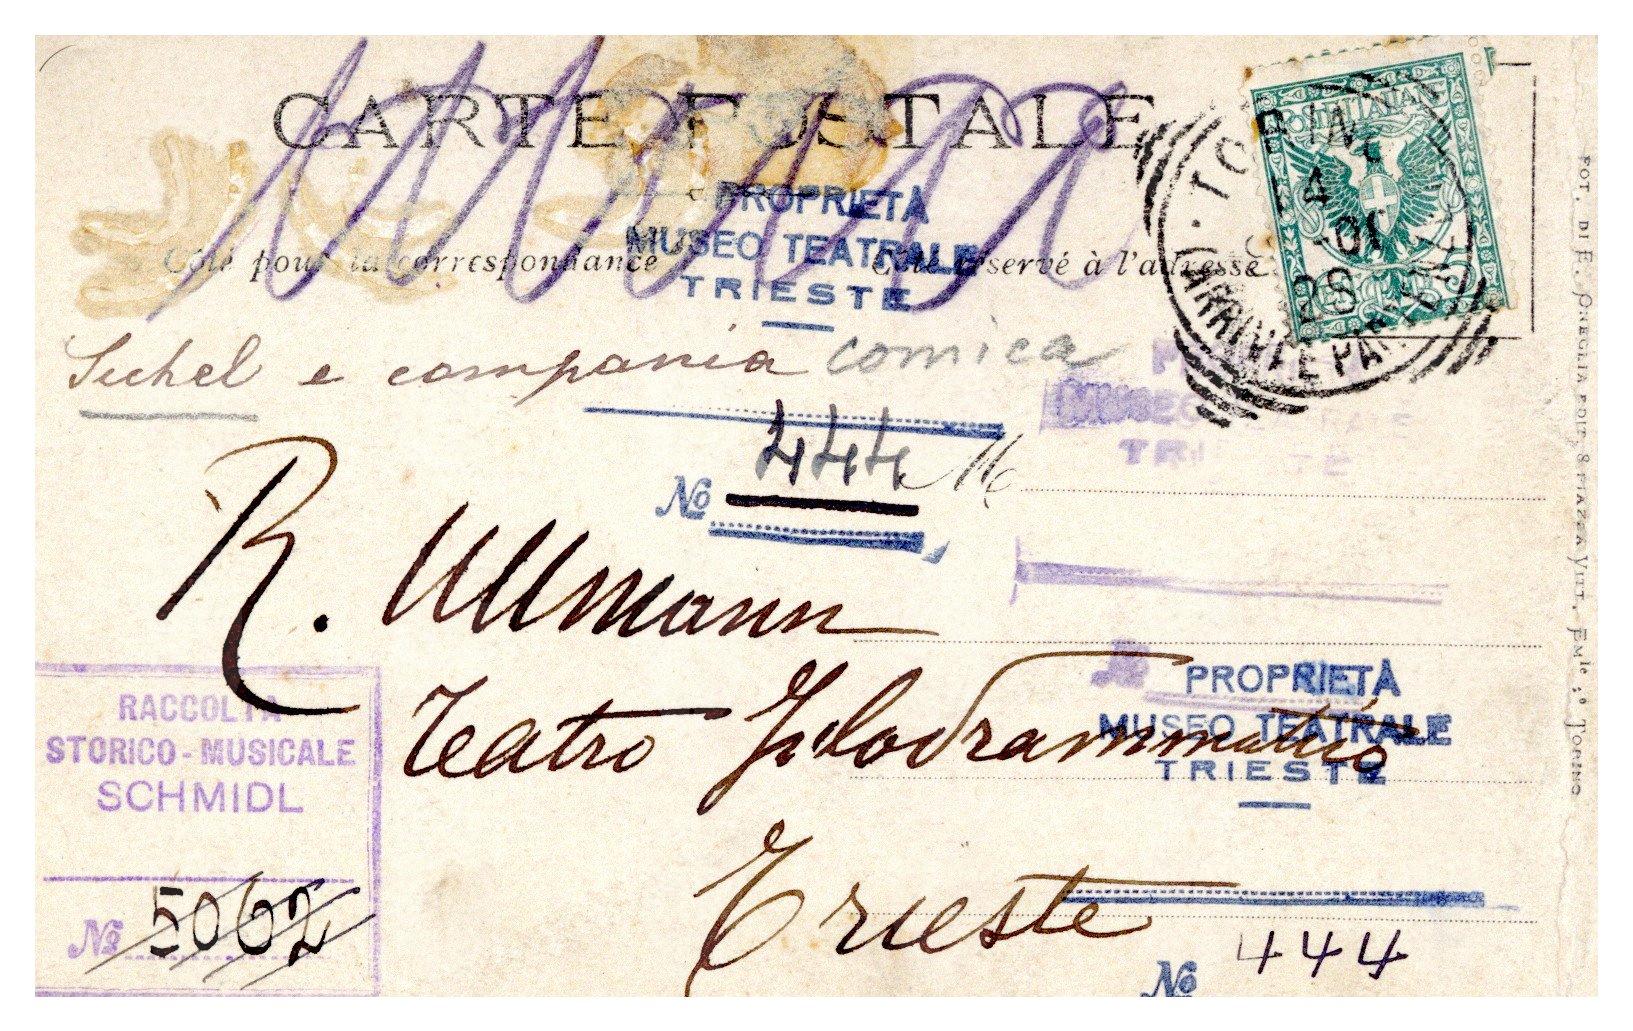 CARTE POSTALE
POSTE ITALIANE
TORINO
4
ARRIVI E PAR
PROPRIETÀ
MUSEO TEATRALE
TRIESTE
Côté pour la correspondance
Côté réservé à l'adresse
Sichel e compania comica
MUSEO
TRIESTE
No 444
M
R. Ullmann
PROPRIETÀ
MUSEO TEATRALE
TRIESTE
Teatro Filodrammatico
Trieste
No 444
RACCOLTA
STORICO-MUSICALE
SCHMIDL
No 5062
FOT. DI E. ONEGLIA EDIT. 8 PIAZZA VITT. EM^le TORINO